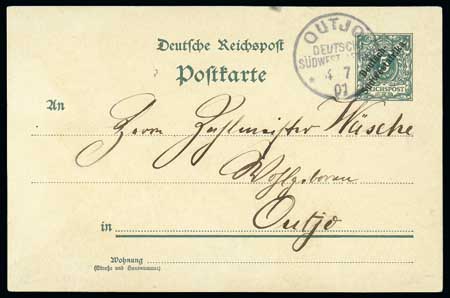 Deutsche Reichspost
Postkarte
OUTJO
DEUTSCH
SÜDWEST
* 4 7
01
REICHSPOST
An
Herrn Zahlmeister Wäsche
Wohlgeboren
in Outjo
Wohnung
(Straße und Hausnummer)